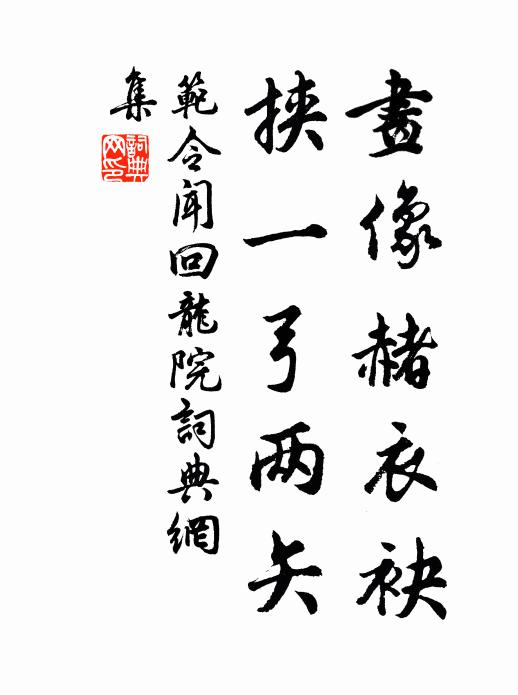 畫像赭衣袂
挾一弓两矢
範令聞回龍院詞典網
集
詞典网印